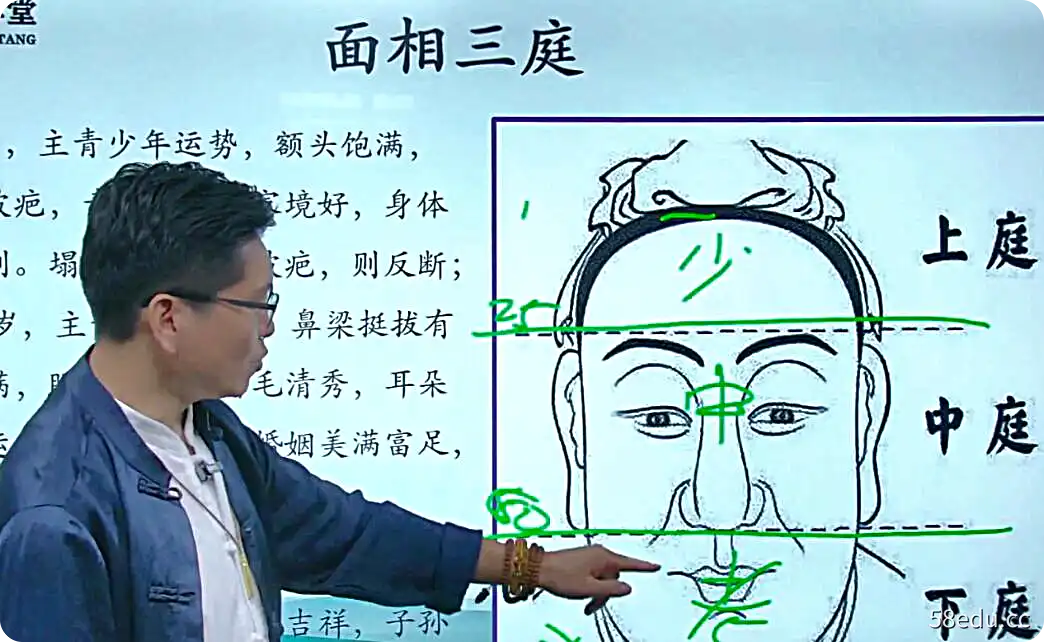 堂
TANG
面相三庭
，主青少年运势，额头饱满，
疤，境好，身体
。塌疤，则反断；
岁，主鼻梁挺拔有
满，毛清秀，耳朵
婚姻美满富足，
吉祥，子孙
1
少
上庭
25
中
中庭
50
下庭
58edu.cc